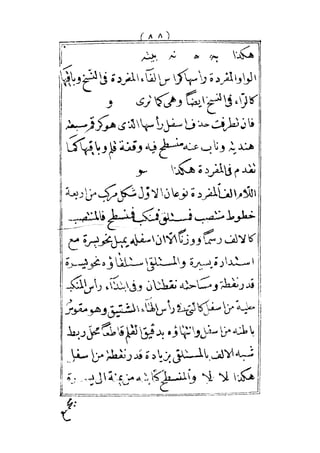 ( ٨٨ )
هكذا بـ ـهـ ـة نـه بيـنه
الواو المفردة رأسها كرأس الفاء المفردة في النسخ وباقيها
كالراء في النسخ ايضاً وهى كما ترى و
فان تطرفت حذف اسفل رأسها الذى هو كرقم سبعة
هندية وناب عنه منسطح فيه وقفة قلم وباقيها كما
تقدم في المفردة هكذا ـو
اللام الف المفردة نوعان الاول شكل مركب من اربعة
خطوط منتصب فمستلقى فمنكب فمنسطح فالمنتصب
كالالف رسما ووزنا الا ان اسفله يميل نحو يسرة مع
استدارة يسيرة والمستلقى استلقاؤه نحو يسرة
قدر نقطة ومساحته نقطتان وفى ابتداء رأس المنكب
من اسفل رأس الحاء وهو مقوس
باطنه من اسفل وانتهاؤه بدقيق القلم قاطعاً محل ربط
شبه الالف بالمستلقى بزيادة قدر نقطة من اسفل
هكذا لا لا لا والمنسطح كتابته من يمنة الى يسرة